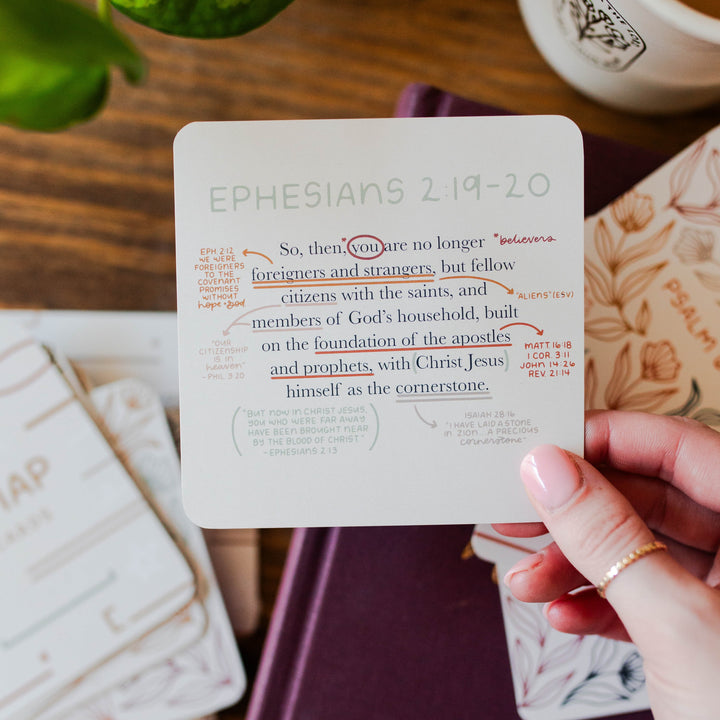 EPHESIANS 2:19-20
So, then, *you are no longer *believers
foreigners and strangers, but fellow
citizens with the saints, and
members of God's household, built
on the foundation of the apostles
and prophets, with (Christ Jesus)
himself as the cornerstone.
EPH 2:12
WE WERE
FOREIGNERS
TO THE
COVENANT
PROMISES
WITHOUT
hope + God
"ALIENS" (ESV)
"OUR
CITIZENSHIP
is in
heaven"
- PHIL. 3:20
MATT. 16:18
1 COR. 3:11
JOHN 14:26
REV. 21:14
"BUT NOW IN CHRIST JESUS,
YOU WHO WERE FAR AWAY
HAVE BEEN BROUGHT NEAR
BY THE BLOOD OF CHRIST"
- EPHESIANS 2:13
ISAIAH 28:16
"I HAVE LAID A STONE
IN ZION... A PRECIOUS
cornerstone"
PSALM
MAP
CARDS
E